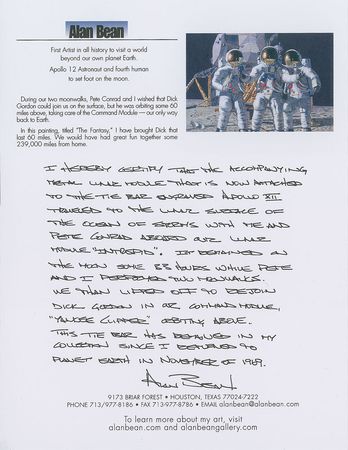 Alan Bean
First Artist in all history to visit a world
beyond our own planet Earth.
Apollo 12 Astronaut and fourth human
to set foot on the moon.
During our two moonwalks, Pete Conrad and I wished that Dick
Gordon could join us on the surface, but he was orbiting some 60
miles above, taking care of the Command Module — our only way
back to Earth.
In this painting, titled "The Fantasy," I have brought Dick that
last 60 miles. We would have had great fun together some
239,000 miles from home.
I HEREBY CERTIFY THAT THE ACCOMPANYING
METAL LUNAR MODULE THAT IS NOW ATTACHED
TO THE TIE BAR ENGRAVED APOLLO XII
TRAVELED TO THE LUNAR SURFACE OF
THE OCEAN OF STORMS WITH ME AND
PETE CONRAD ABOARD OUR LUNAR
MODULE "INTREPID". IT REMAINED ON
THE MOON SOME 33 HOURS WHILE PETE
AND I PERFORMED TWO MOONWALKS.
WE THAN LIFTED OFF TO REJOIN
DICK GORDON IN OUR COMMAND MODULE,
"YANKEE CLIPPER" ORBITING ABOVE.
THIS TIE BAR HAS REMAINED IN MY
COLLECTION SINCE I RETURNED TO
PLANET EARTH IN NOVEMBER OF 1969.
ALAN BEAN
9173 BRIAR FOREST • HOUSTON, TEXAS 77024-7222
PHONE 713/977-8186 • FAX 713-977-8786 • EMAIL alanbean@alanbean.com
To learn more about my art, visit
alanbean.com and alanbeangallery.com